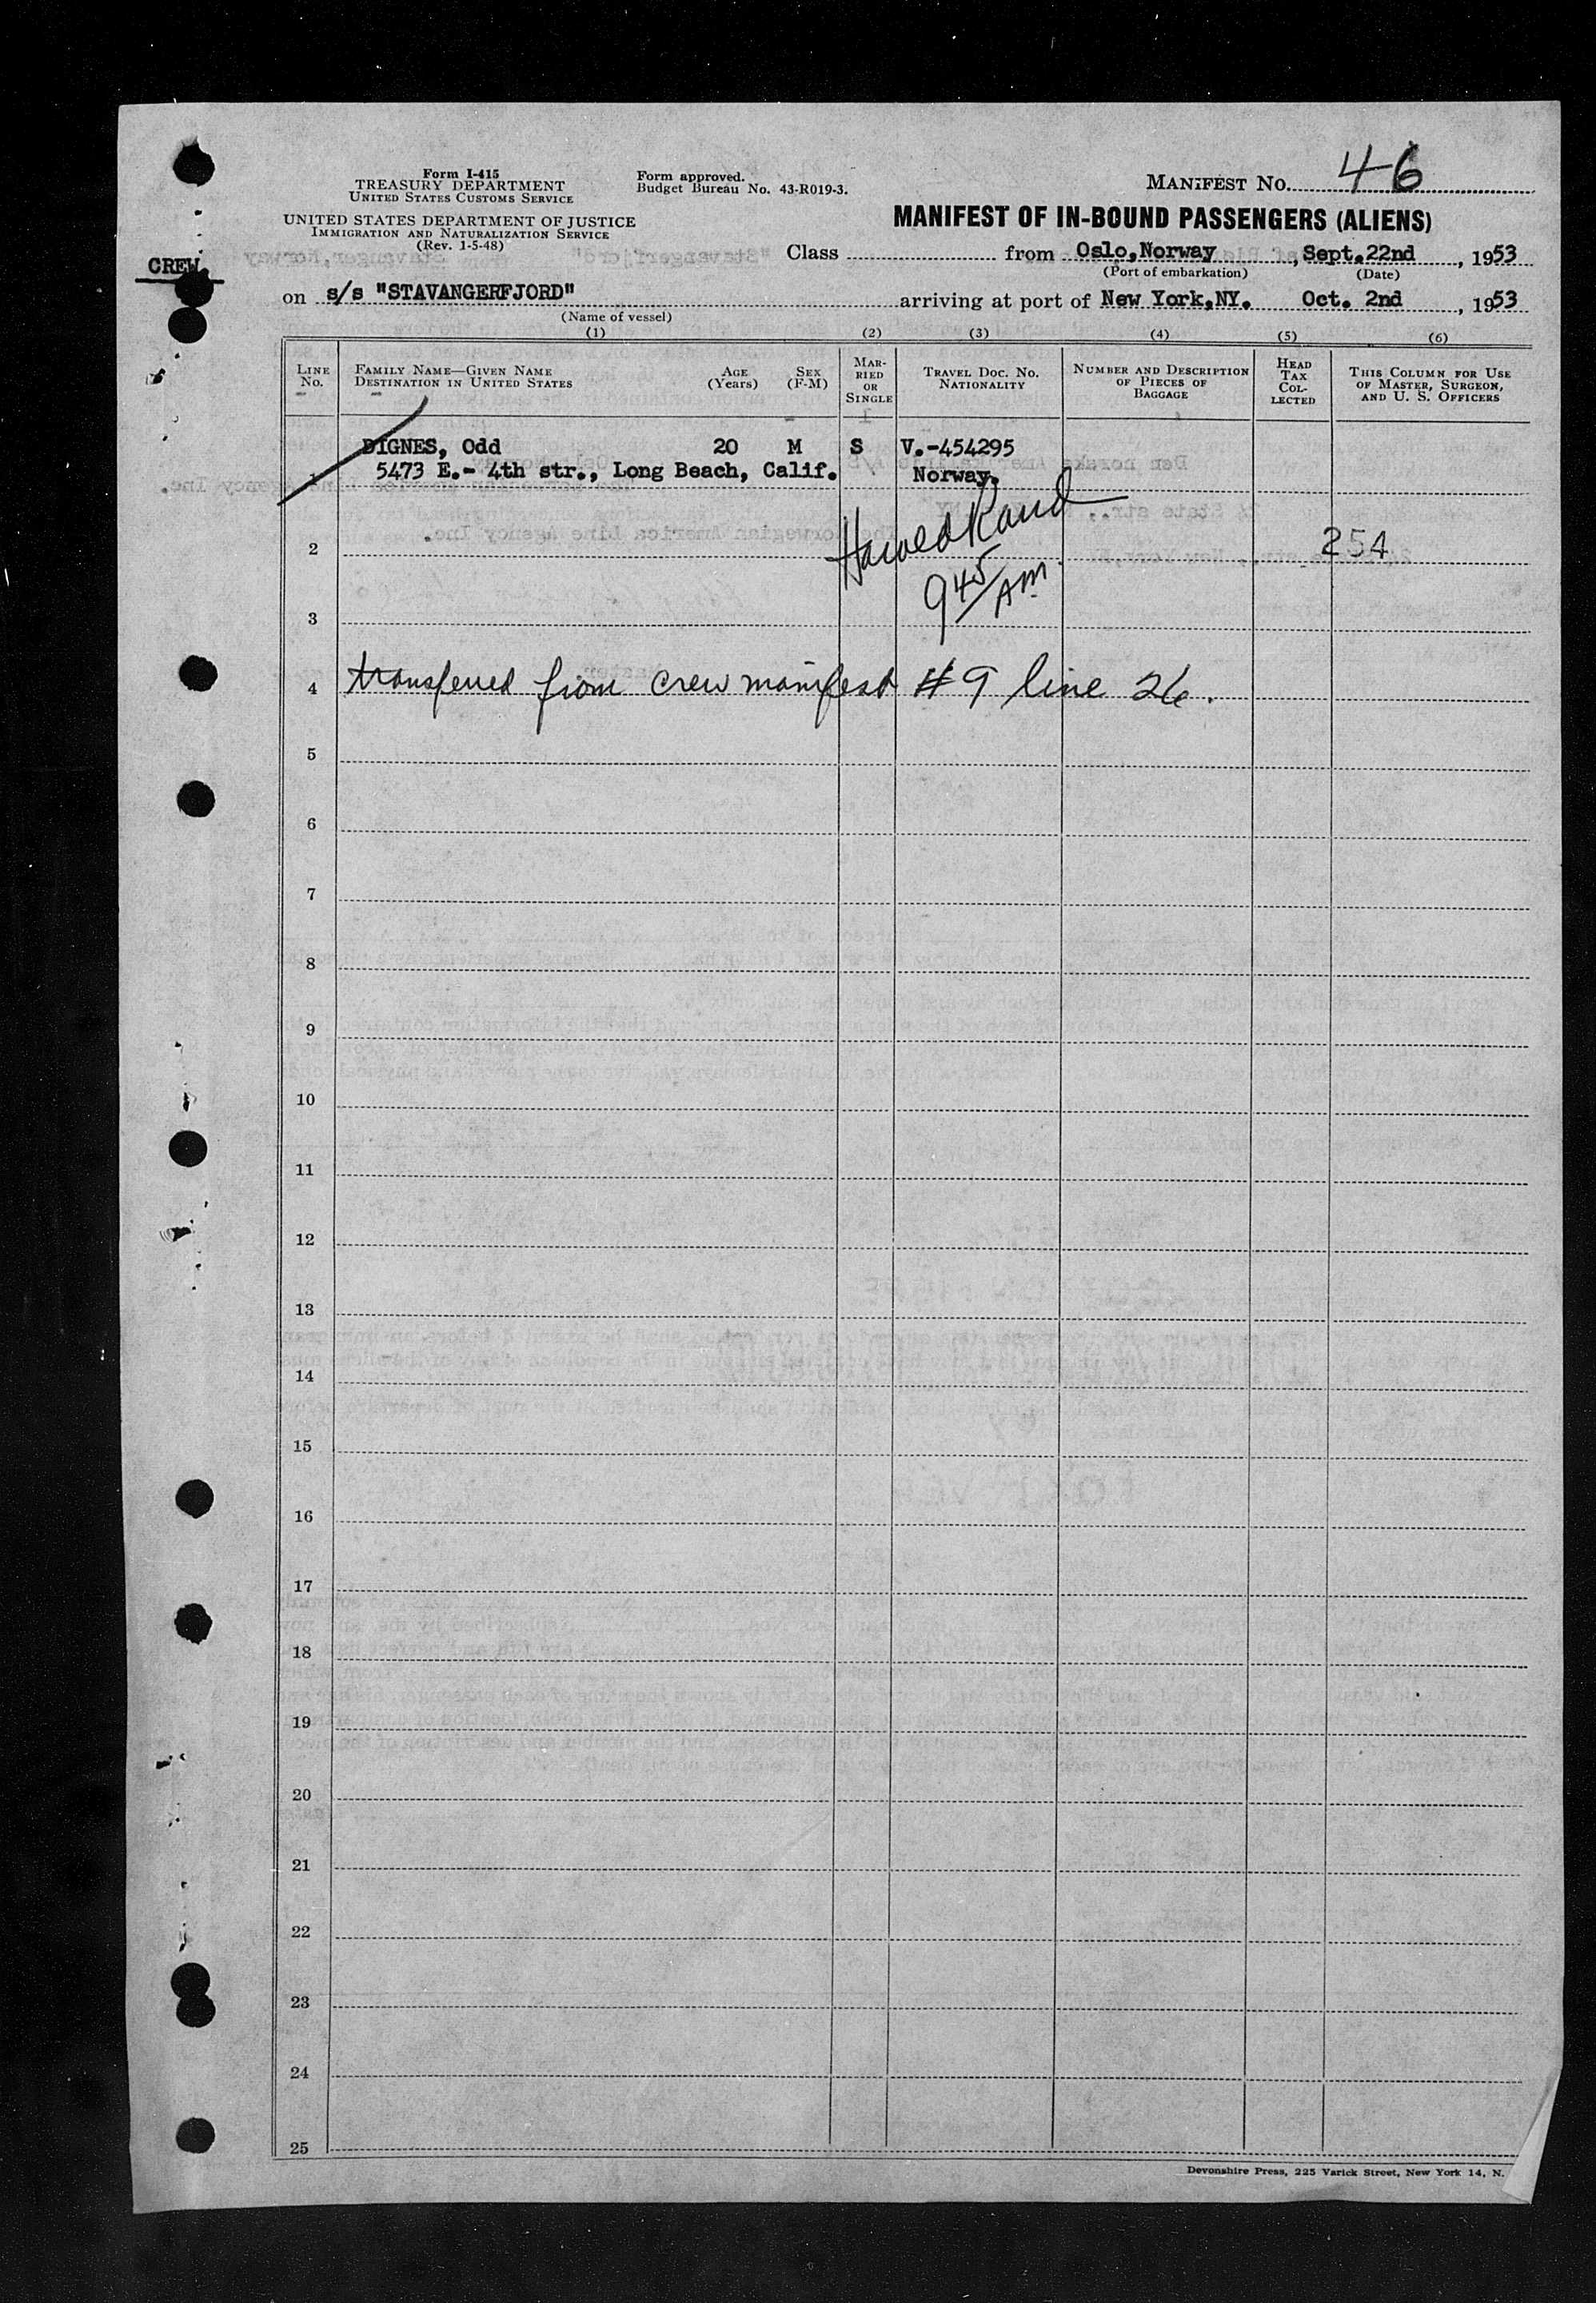 Form I-415
TREASURY DEPARTMENT
UNITED STATES CUSTOMS SERVICE
UNITED STATES DEPARTMENT OF JUSTICE
IMMIGRATION AND NATURALIZATION SERVICE
(Rev. 1-5-48)
Form approved.
Budget Bureau No. 43-R019-3.
MANIFEST No. 46
MANIFEST OF IN-BOUND PASSENGERS (ALIENS)
CREW
Class from Oslo, Norway, Sept. 22nd, 1953
(Port of embarkation) (Date)
on s/s "STAVANGERFJORD" arriving at port of New York, NY. Oct. 2nd, 1953
(Name of vessel)
(1) (2) (3) (4) (5) (6)
LINE No.
FAMILY NAME—GIVEN NAME
DESTINATION IN UNITED STATES
AGE (Years)
SEX (F-M)
MARRIED OR SINGLE
TRAVEL DOC. No. NATIONALITY
NUMBER AND DESCRIPTION OF PIECES OF BAGGAGE
HEAD TAX COLLECTED
THIS COLUMN FOR USE OF MASTER, SURGEON, AND U. S. OFFICERS
DIGNES, Odd 20 M S V.-454295
1 5473 E.- 4th str., Long Beach, Calif. Norway.
2 254
9 45/AM
3
4 transferred from crew manifest #9 line 26.
5
6
7
8
9
10
11
12
13
14
15
16
17
18
19
20
21
22
23
24
25
Devonshire Press, 225 Varick Street, New York 14, N.